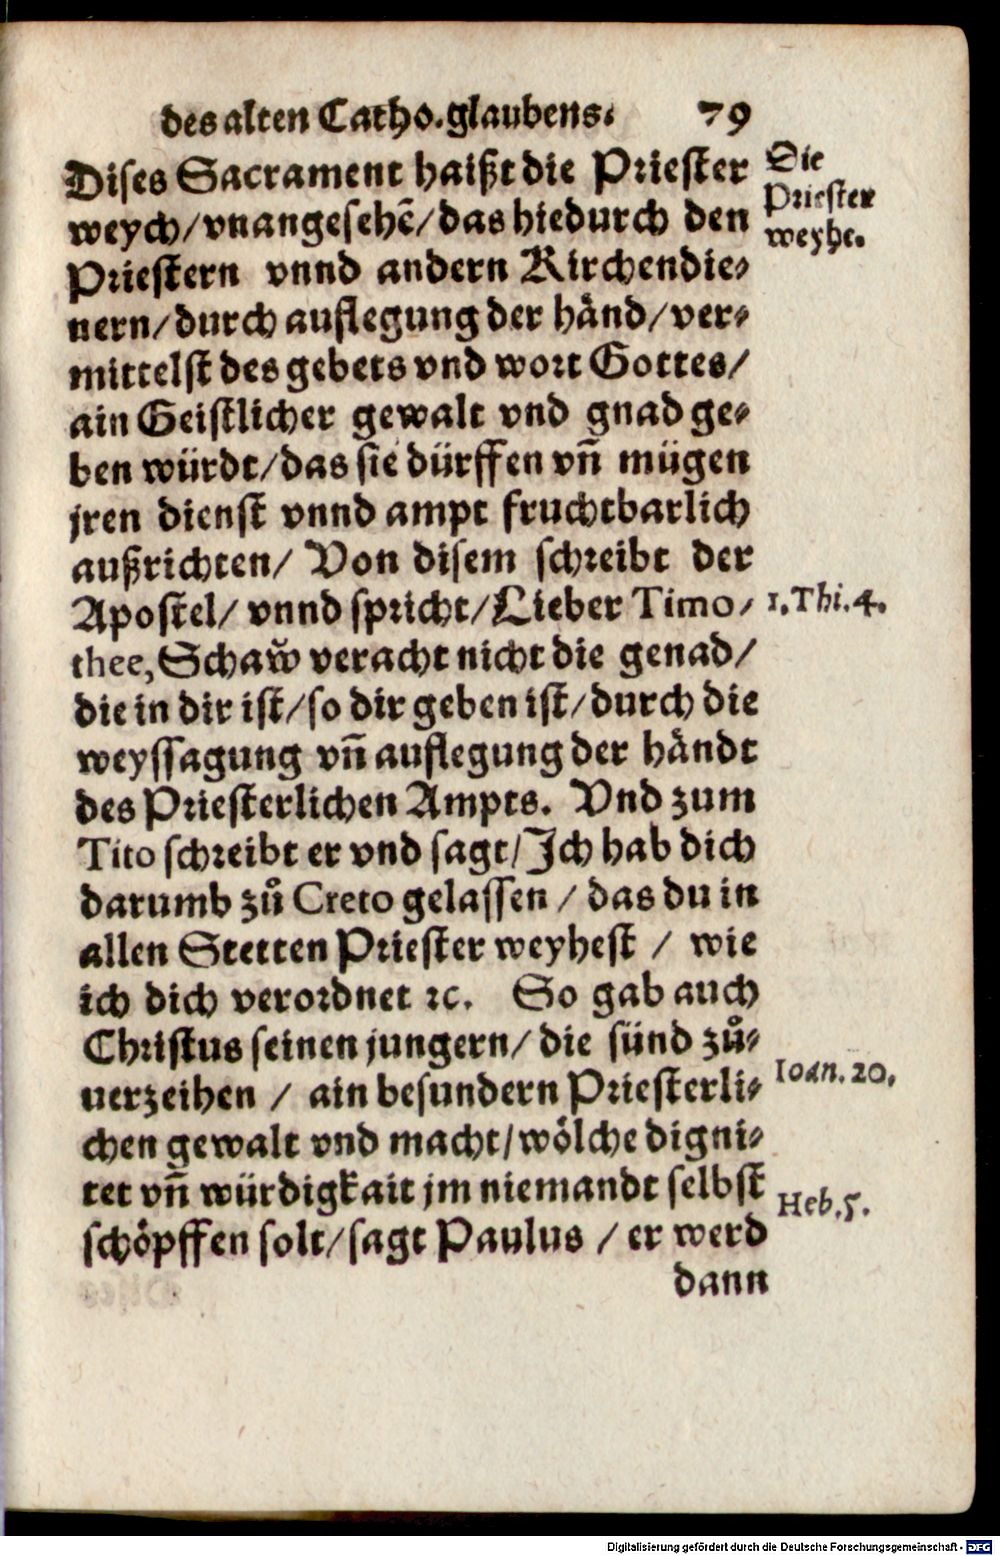 des alten Catho. glaubens. 79
Dises Sacrament haißt die Priester
weych/ vnangesehē/ das hiedurch den
Priestern vnnd andern Kirchendie⸗
nern/ durch auflegung der händ/ ver⸗
mittelst des gebets vnd wort Gottes/
ain Geistlicher gewalt vnd gnad ge⸗
ben würdt/ das sie dürffen vñ mügen
jren dienst vnnd ampt fruchtbarlich
außrichten/ Von disem schreibt der
Apostel/ vnnd spricht/ Lieber Timo⸗
thee, Schaw̌ veracht nicht die genad/
die in dir ist/ so dir geben ist/ durch die
weyssagung vñ auflegung der händt
des Priesterlichen Ampts. Vnd zum
Tito schreibt er vnd sagt/ Ich hab dich
darumb zů Creto gelassen / das du in
allen Stetten Priester weyhest / wie
ich dich verordnet ꝛc. So gab auch
Christus seinen jungern/ die sünd zů⸗
uerzeihen / ain besundern Priesterli⸗
chen gewalt vnd macht/ wölche digni⸗
tet vñ würdigkait jm niemandt selbst
schöpffen solt/ sagt Paulus / er werd
dann
Die
Priester
weyhe.
1. Thi. 4.
Ioan. 20,
Heb. 5.
Digitalisierung gefördert durch die Deutsche Forschungsgemeinschaft - DFG